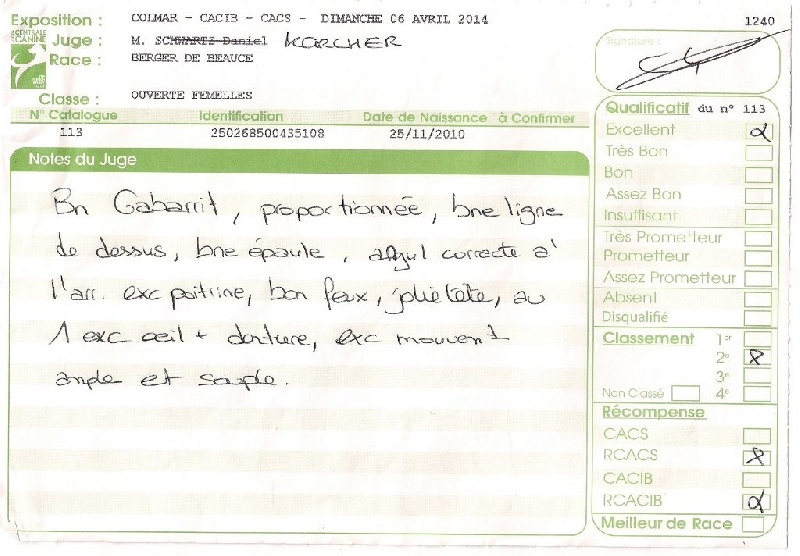 Exposition : COLMAR - CACIB - CACS - DIMANCHE 06 AVRIL 2014
1240
CENTRALE CANINE
Juge : M. SCHWARTZ Daniel KORCHER
Race : BERGER DE BEAUCE
Classe : OUVERTE FEMELLES
Signature :
N° Catalogue Identification Date de Naissance à Confirmer
113 250268500435108 25/11/2010
Notes du Juge
Bn Gabarrit, proportionnée, bne ligne
de dessus, bne épaule, angul correcte à
l'arr. exc poitrine, bon feux, jolie tête, au
1 exc oeil + denture, exc mouvent
ample et souple.
Qualificatif du n° 113
Excellent
Très Bon
Bon
Assez Bon
Insuffisant
Très Prometteur
Prometteur
Assez Prometteur
Absent
Disqualifié
Classement 1er
2e
3e
Non Classé 4e
Récompense
CACS
RCACS
CACIB
RCACIB
Meilleur de Race